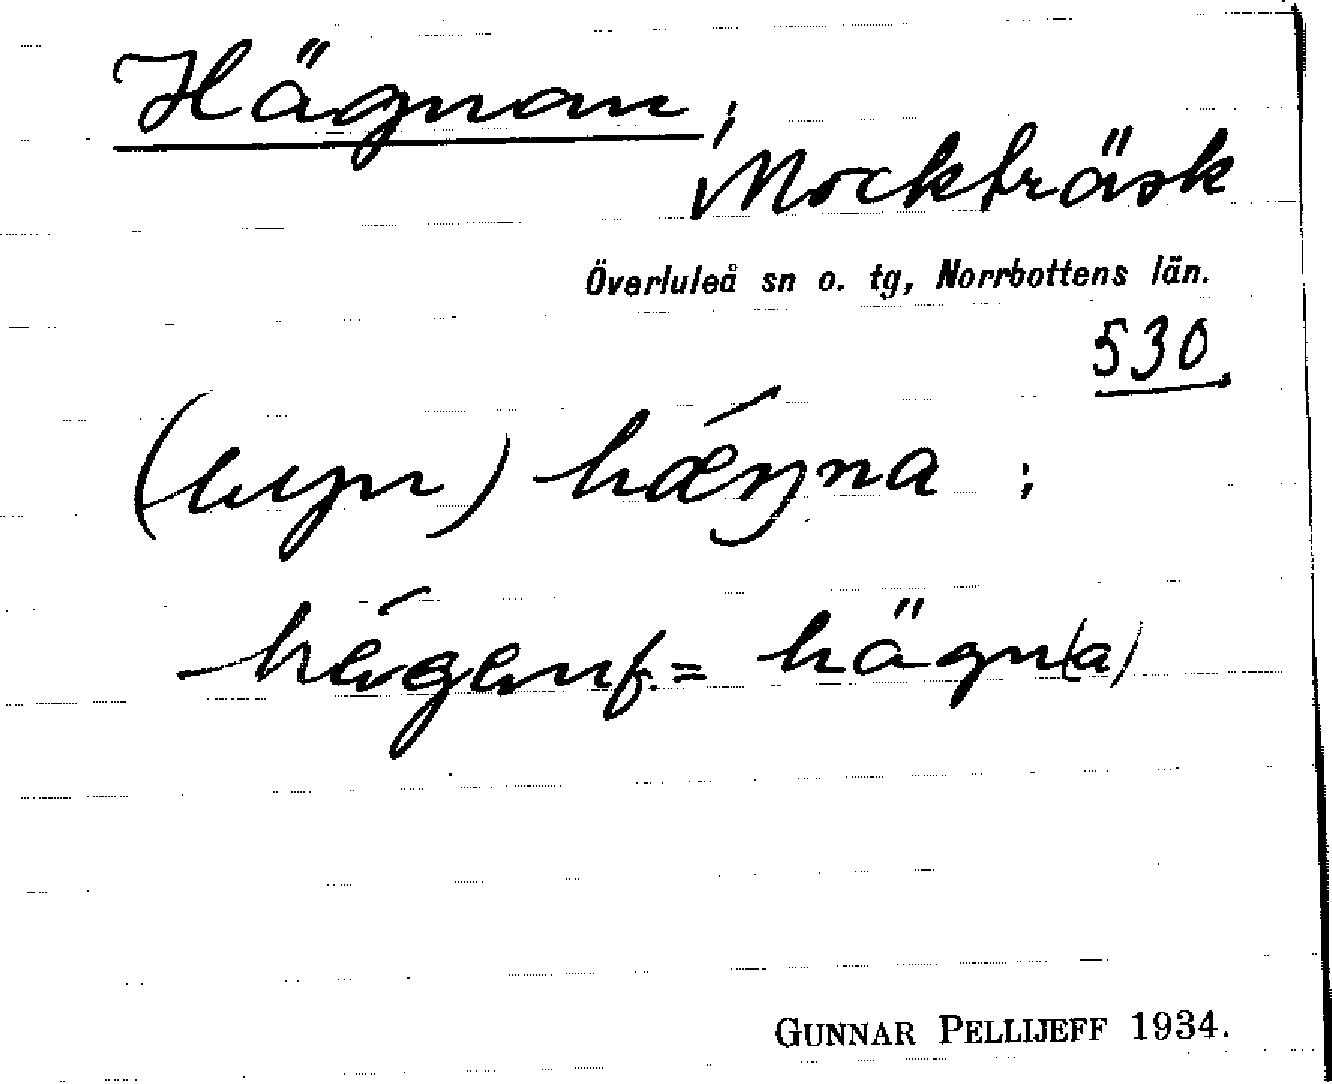 Hägnan,
Mockträsk
Överluleå sn o. tg, Norrbottens län.
530
(byn) hæŋna ;
hägen f. = hägn(a)
GUNNAR PELLIJEFF 1934.